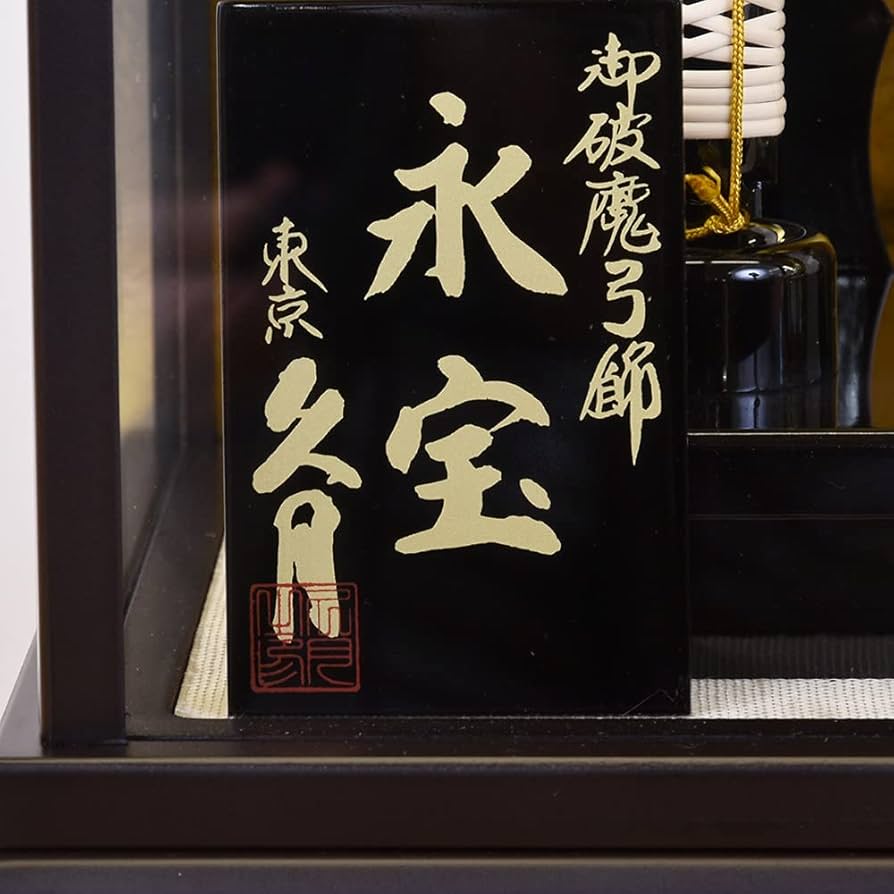 御破魔弓師
永宝
東京
久月